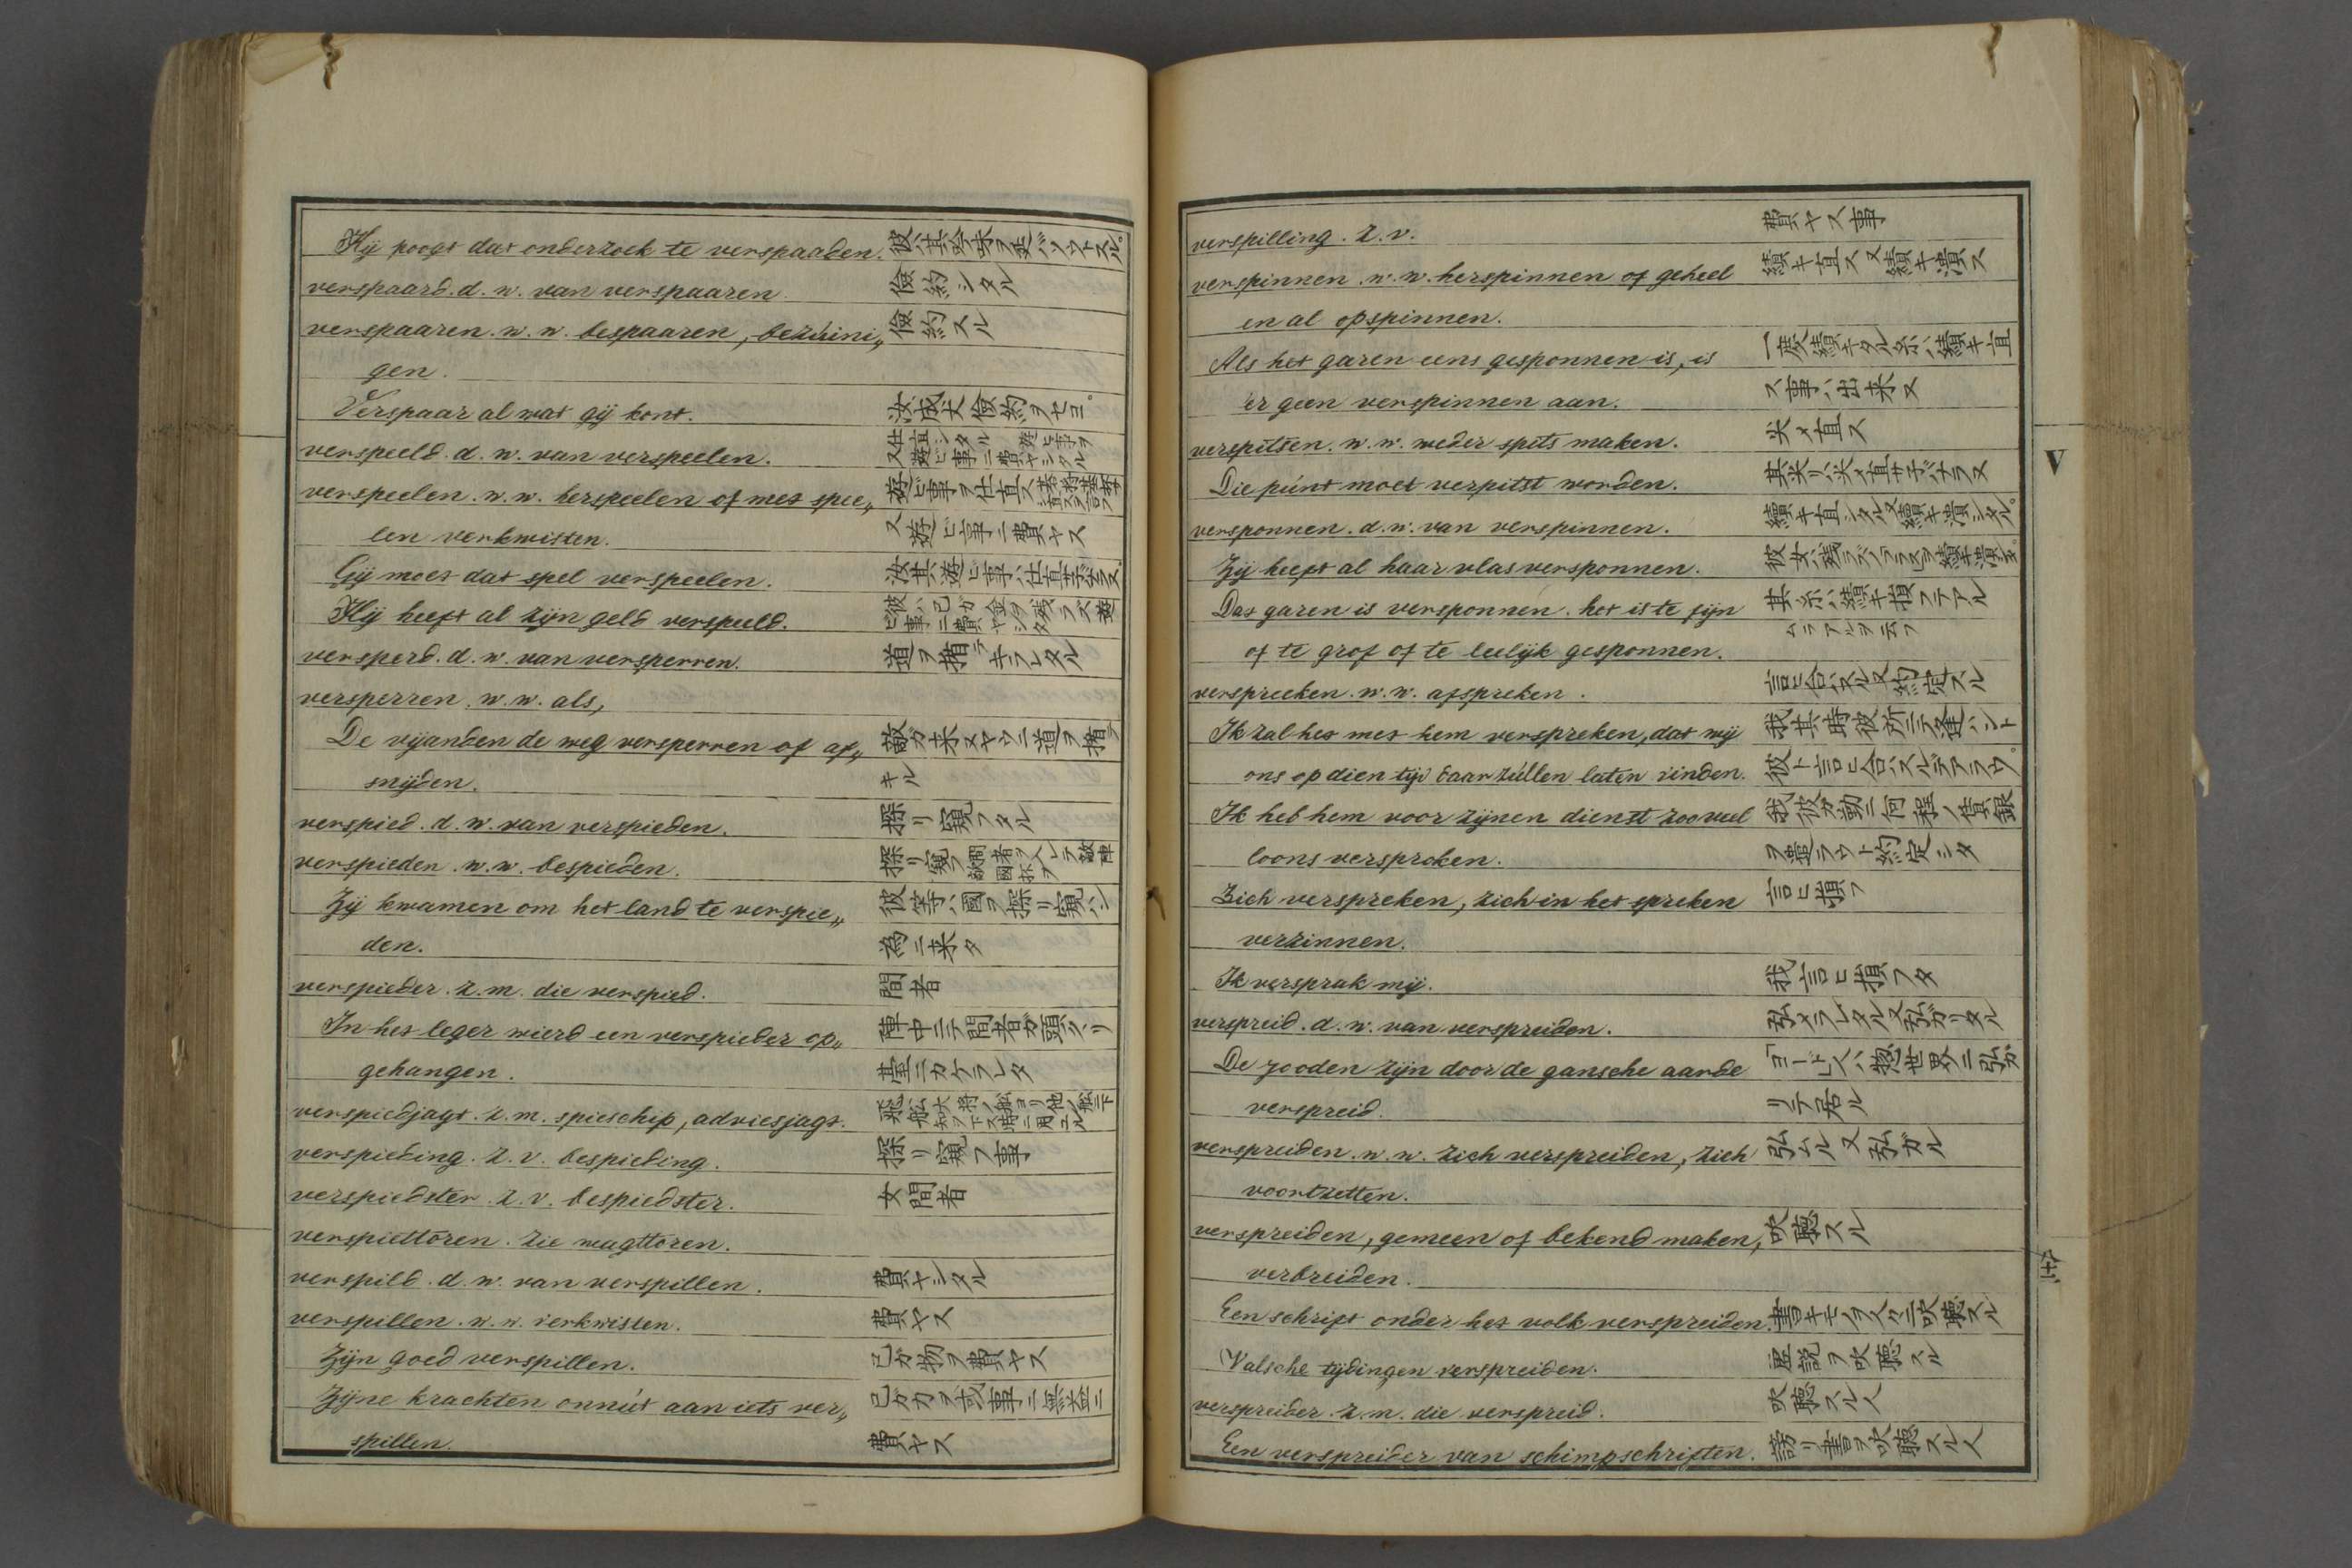 Hij poogt dat onderzoek te verspaaden.
verspaard. d. w. van verspaaren. 儉約シタル
verspaaren. w. w. bespaaren, bezúini„ 儉約スル
gen.
Verspaar al wat gij kont. 汝成丈儉約ヲセヨ。
verspeeld. d. w. van verspeelen.
verspeelen. w. w. herspeelen of met spee„ 遊ビ事ヲ仕直ス
len verkwisten. 又遊ビ事ニ費ヤス
Gij moet dat spel verspeelen.
Hij heeft al zijn geld verspeeld. 彼ハ己ガ金ヲ残ラズ遊ビ事ニ費ヤシタ
versperd. d. w. van versperren.
versperren. w. w. als,
De vijanden de weg versperren of af„
snijden. キル
verspied. d. w. van verspieden. 探リ窺フタル
verspieden. w. w. bespieden. 探リ窺フ
Zij kwamen om het land te verspie„ 彼等ハ國ヲ探リ窺ハン
den. 為ニ来タ
verspieder. z. m. die verspied. 間者
In het leger wierd een verspieder op„ 陣中ニテ間者ガ頭クヽリ
gehangen. 臺ニカケラレタ
verspiedjagt. z. m. spieschip, adviesjagt.
verspieding. z. v. bespieding. 探リ窺フ事
verspiedster. z. v. bespiedster. 女間者
verspiettoren. zie wagttoren.
verspild. d. w. van verspillen. 費ヤシタル
verspillen. w. w. verkwisten. 費ヤス
Zijn goed verspillen. 己ガ物ヲ費ヤス
Zijne krachten onnút aan iets ver„ 己ガ力ヲ或事ニ無益ニ
spillen. 費ヤス
verspilling. z. v. 費ヤス事
verspinnen. w. w. herspinnen of geheel 績キ直ス又績キ潰ス
en al opspinnen.
Als het garen eens gesponnen is, is 一度績キタル糸ハ績キ直
'er geen verspinnen aan. ス事ハ出来ヌ
verspitsen. w. w. weder spits maken. 尖メ直ス
Die púnt moet verpitst worden.
versponnen. d. w. van verspinnen. 績キ直シタル又績キ潰シタル。
Zij heeft al haar vlas versponnen.
Dat garen is versponnen. het is te fijn 其糸ハ績キ損フテアル
of te grof of te leelijk gesponnen. ムラアルヲ云フ
verspreeken. w. w. afspreken. 言ヒ合ハスル又約定スル
Ik zal het met hem verspreken, dat wij 我其時彼所ニテ逢ハント
ons op dien tijd daar zúllen laten vinden. 彼ト言ヒ合ハスルデアラウ。
Ik heb hem voor zijnen dienst zoo veel 我彼ガ勤ニ何程ノ賃銀
loons versproken. ヲ遣ラウト約定シタ
Zich verspreken, zich in het spreken 言ヒ損フ
verzinnen.
Ik versprak mij. 我言ヒ損フタ
verspreid. d. w. van verspreiden. 弘メラレタル又弘ガリタル
De jooden zijn door de gansche aarde 惣世界ニ弘ガ
verspreid. リテ居ル
verspreiden. w. w. zich verspreiden, zich 弘ムル又弘ガル
voortzetten.
verspreiden, gemeen of bekend maken, 吹聴スル
verbreiden.
Een schrift onder het volk verspreiden. 書キモノヲ人々ニ吹聴スル
Valsche tijdingen verspreiden. 虚説ヲ吹聴スル
verspreider. z. m. die verspreid. 吹聴スル人
Een verspreider van schimpschriften. 謗リ書ヲ吹聴スル人
V